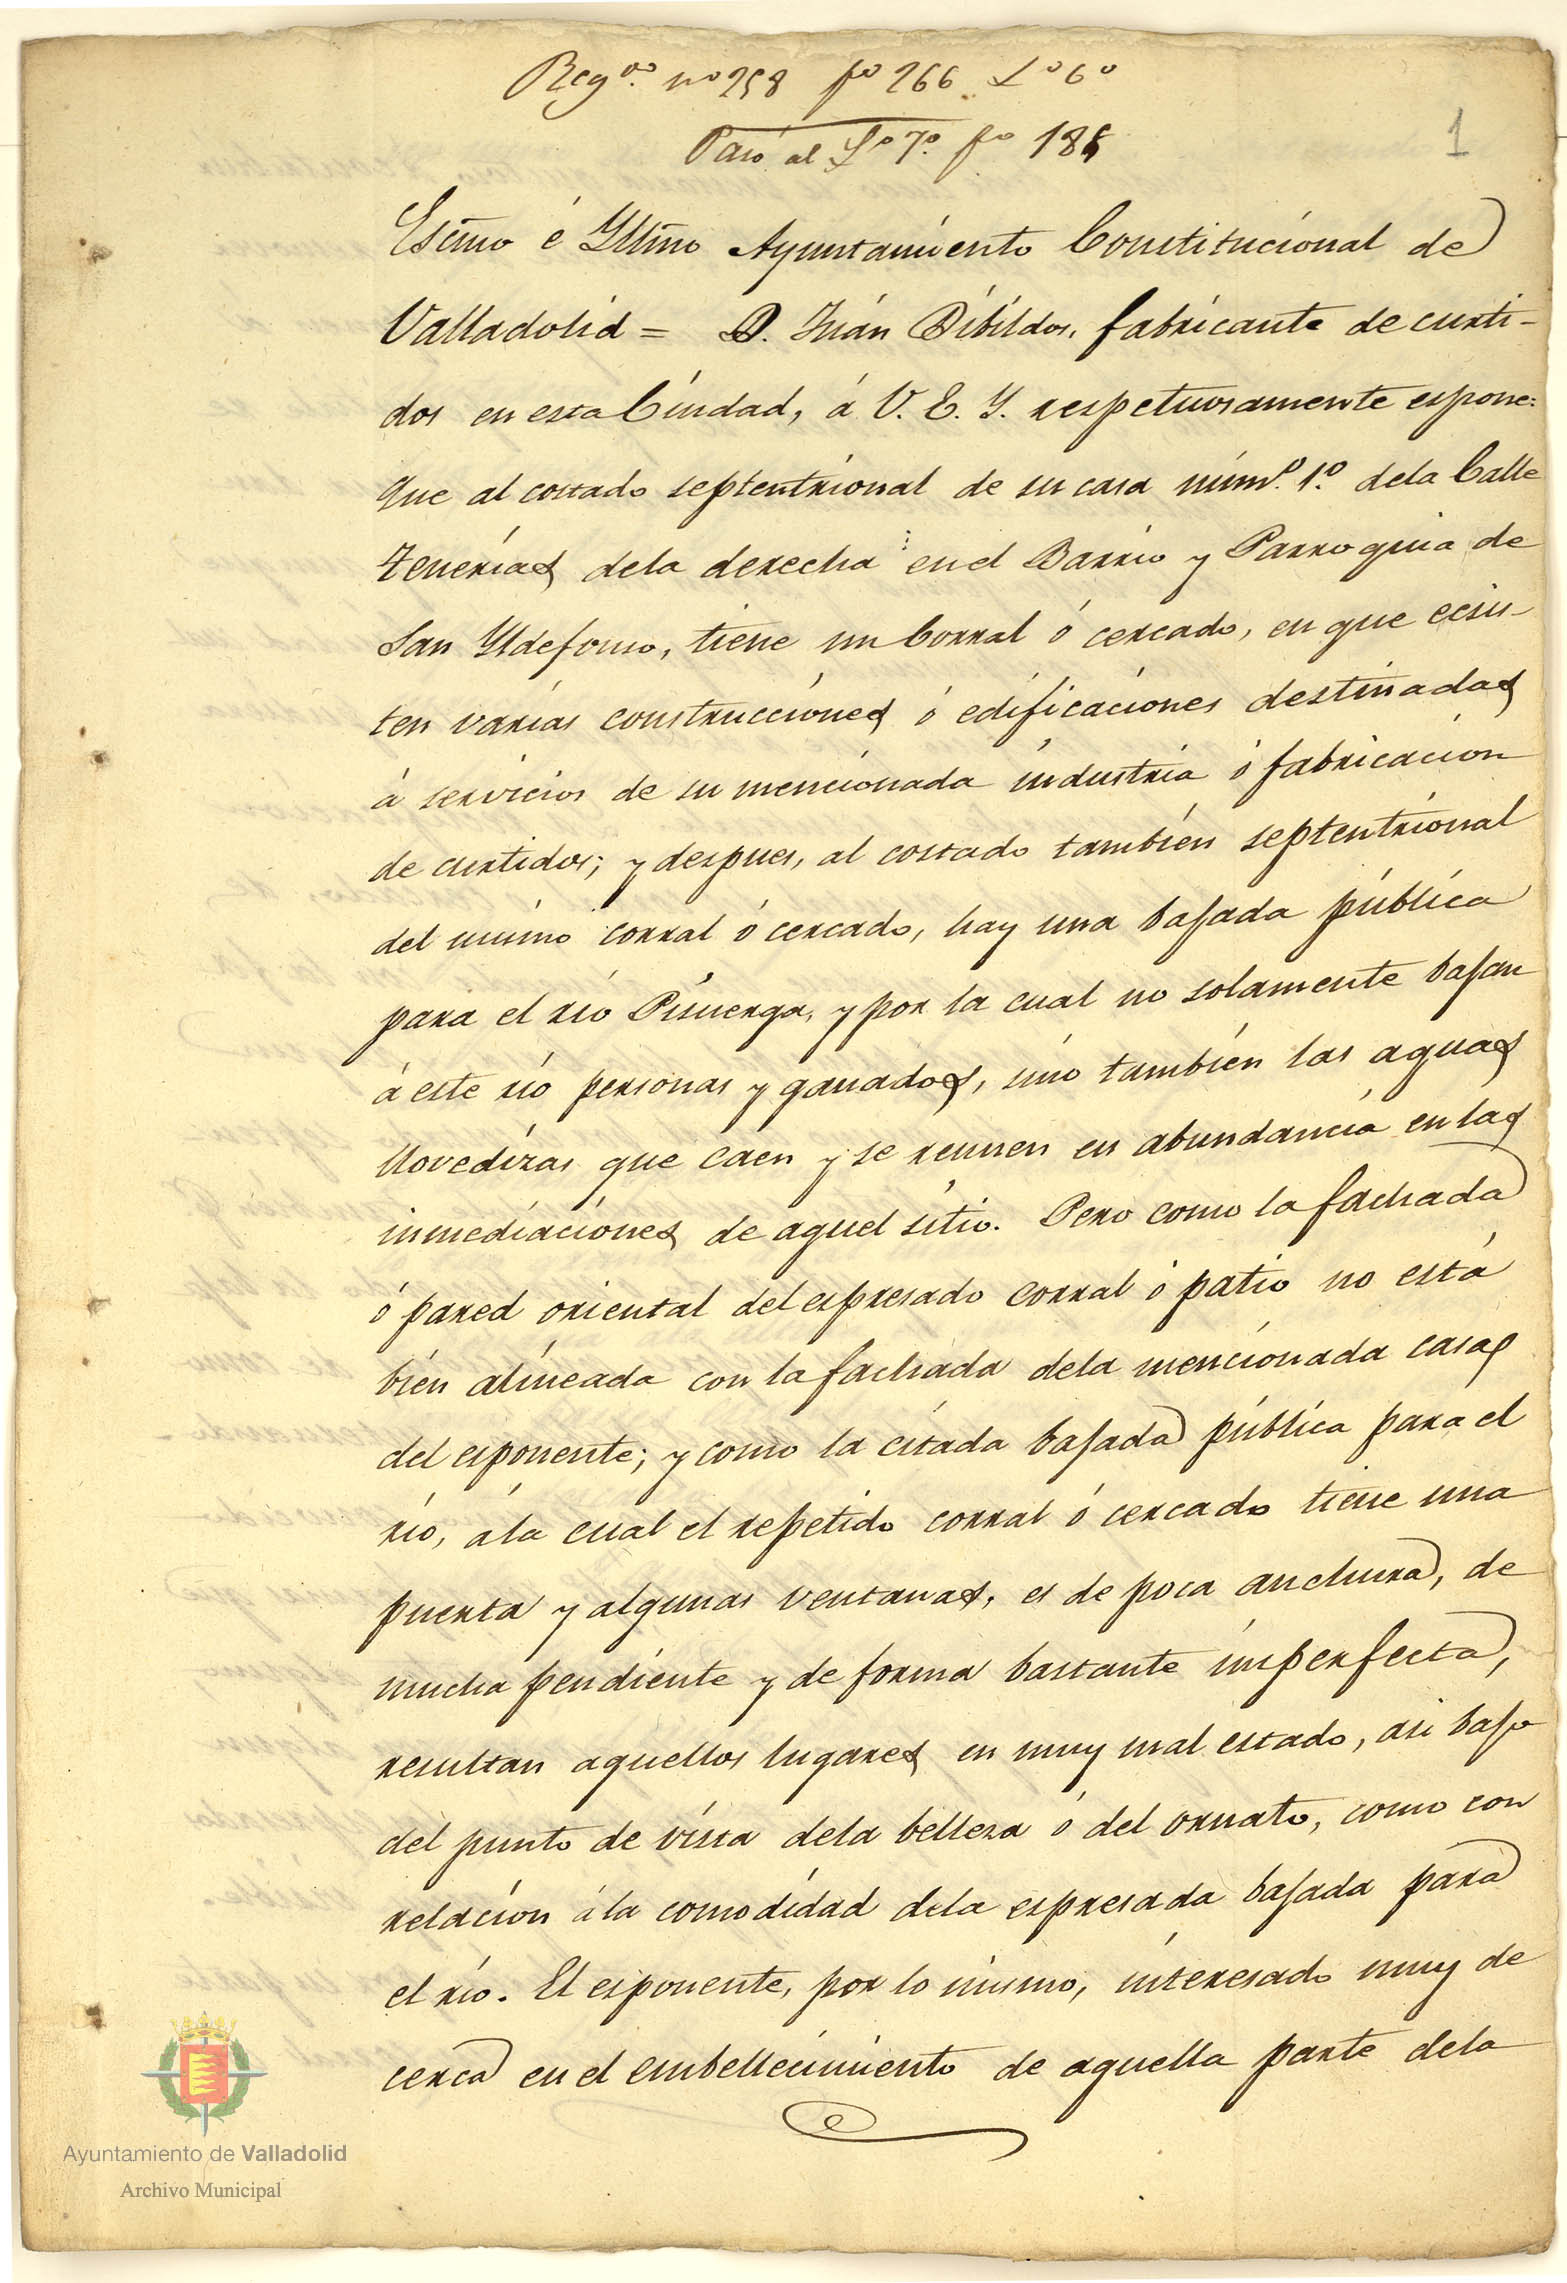 Reg.do nº 258 fº 266 Lº 6º
Pasó al Lº 7º fº 185
1
Escmo é Yllmo Ayuntamiento Constitucional de
Valladolid = D. Juán Dibildos, fabricante de curti-
dos en esta Ciudad, á V. E. Y. respetuosamente espone:
Que al costado septentrional de su casa númº. 1º. dela Calle
Tenerías dela derecha en el Barrio y Parroquia de
San Yldefonso, tiene un Corral ó cercado, en que ecsis-
ten varias construcciones ó edificaciones destinadas
á servicios de su mencionada industria ó fabricacion
de curtidos; y despues, al costado también septentrional
del mismo corral ó cercado, hay una bajada pública
para el río Pisuerga, y por la cual no solamente bajan
á este río personas y ganados, sino también las aguas
llovedizas que caen y se reunen en abundancia en las
inmediaciones de aquel sitio. Pero como la fachada
ó pared oriental del espresado corral ó patio no está
bien alineada con la fachada dela mencionada casa
del esponente; y como la citada bajada pública para el
río, á la cual el repetido corral ó cercado tiene una
puerta y algunas ventanas, es de poca anchura, de
mucha pendiente y de forma bastante imperfecta,
resultan aquellos lugares en muy mal estado, asi bajo
del punto de vista dela belleza ó del ornato, como con
relación á la comodidad dela espresada bajada para
el río. El esponente, por lo mismo, interesado muy de
cerca en el embellecimiento de aquella parte dela
Ayuntamiento de Valladolid
Archivo Municipal